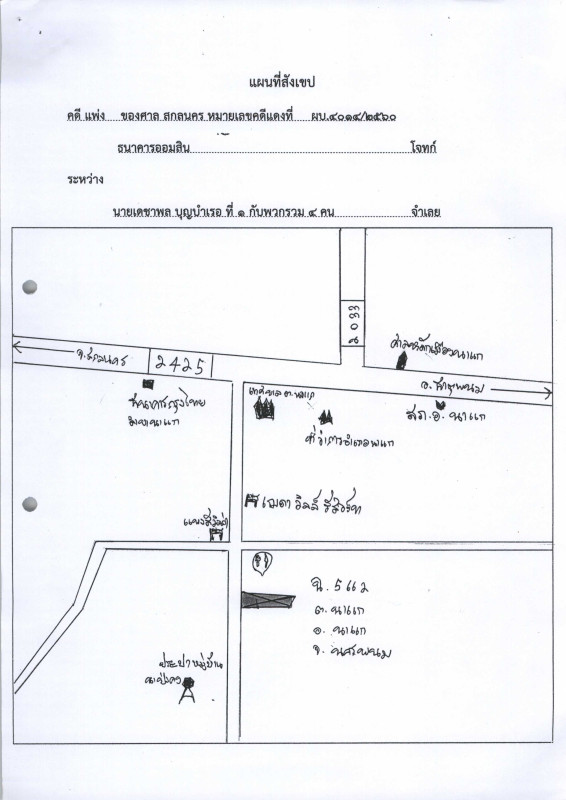 แผนที่สังเขป
คดี แพ่ง ของศาล สกลนคร หมายเลขคดีแดงที่ ผบ.๔๐๑๔/๒๕๖๐
ธนาคารออมสิน โจทก์
ระหว่าง
นายเดชาพล บุญนำเรอ ที่ ๑ กับพวกรวม ๔ คน จำเลย
2033
ศาลหลักเมืองนาแก
จ.สกลนคร
2425
อ.ธาตุพนม
ธนาคารกรุงไทย
สาขานาแก
เทศบาล อ.นาแก
ที่ว่าการอำเภอนาแก
สภ.อ. นาแก
เฌตา วิลล์ รีสอร์ท
ต. นาแก
อ. นาแก
จ. นครพนม
ประปาหมู่บ้าน